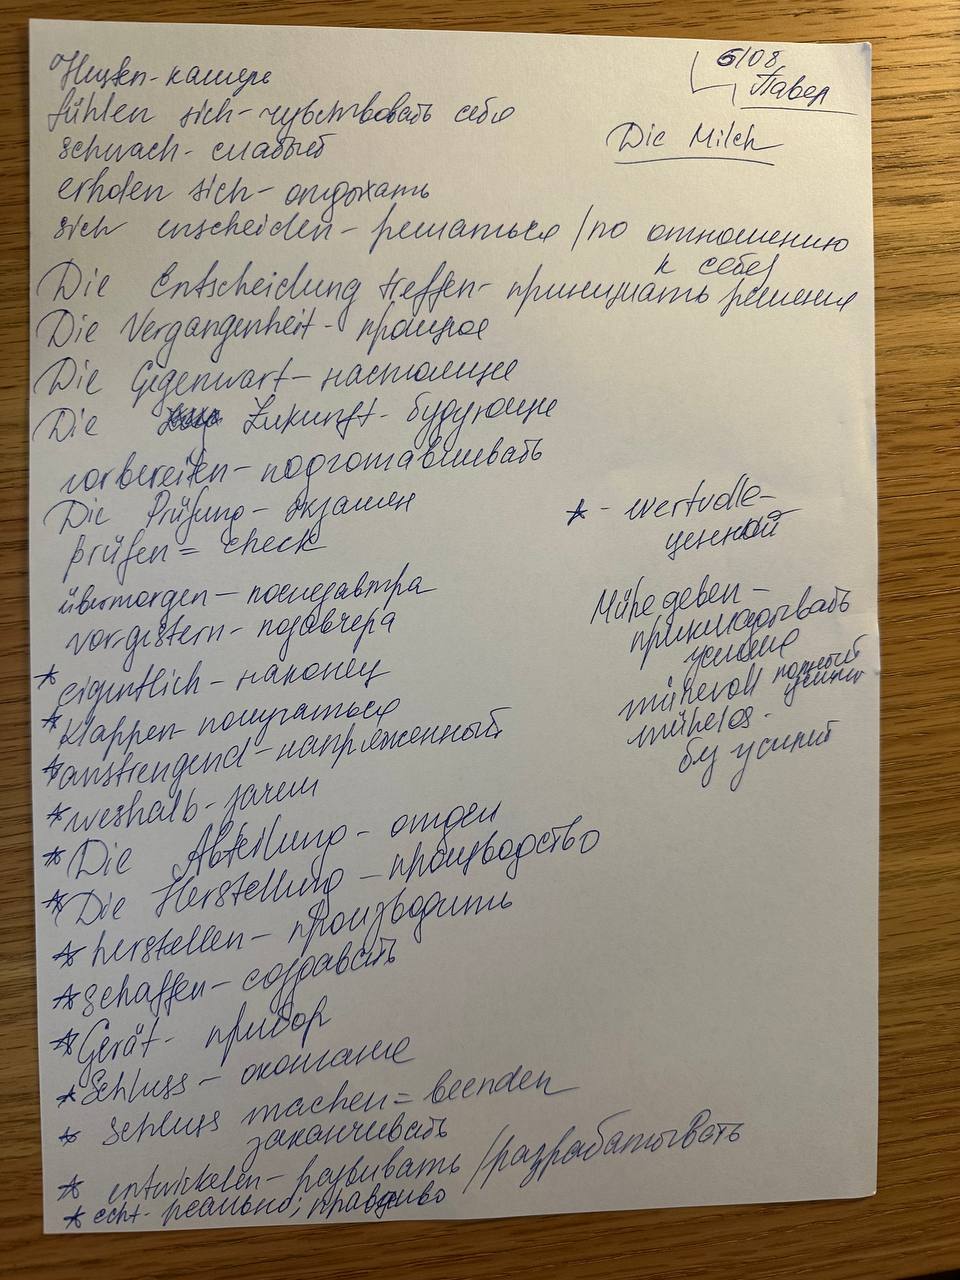 6/08
Павел
Die Milch
Husten - кашель
fühlen sich - чувствовать себя
schwach - слабый
erholen sich - отдыхать
sich enscheiden - решаться / по отношению
к себе
Die Entscheidung treffen - принимать решение
Die Vergangenheit - прошлое
Die Gegenwart - настоящее
Die Zukunft - будующее
vorbereiten - подготавливать
Die Prüfung - экзамен
prüfen = check
übermorgen - послезавтра
vorgistern - позавчера
* eigentlich - наконец
* klappen - получаться
* anstrengend - напряженный
* weshalb - зачем
* Die Abteilung - отдел
* Die Herstellung - производство
* herstellen - производить
* schaffen - создавать
* Gerät - прибор
* Schluss - окончание
* schluss machen = beenden
заканчивать
* entwickelen - развивать / разрабатывать
* echt - реально; правдиво
* - wertvolle -
ценный
Mühe geben -
прикладывать
усилие
mühevoll полный
усилий
mühelos -
без усилий